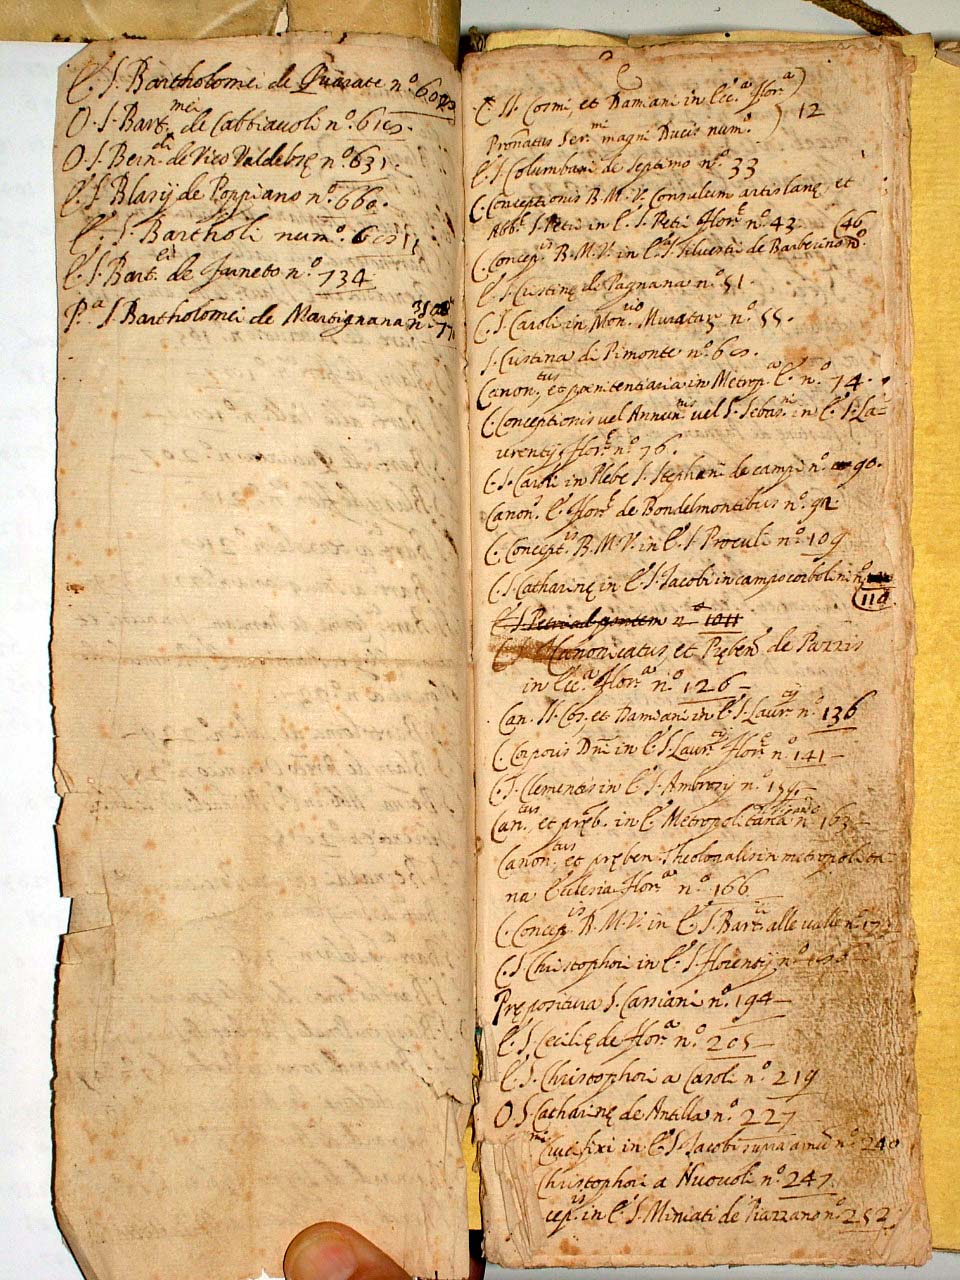 E. S. Bartholomei de Quarate n.o 602
O. S. Bart.mei de Cabbiavoli n.o 615.
O. S. Bern.di de Vico Valdelsę n.o 631.
E. S. Blasij de Poppiano n.o 660.
E. S. Bartholi num.o
E. S. Bart.ei de Farneto n.o 734
P.a S. Bartholomei de Martignana n.o
C
C. SS. Cosmi, et Damiani in Ecc.a Flor.a
Pronatus Ser.mi magni Ducis num.o 12
E. S. Columbani de Septimo n.o 33
C. Conceptionis B. M. V. Consulum artis lanę, et
Abb. S. Petri in E. S. Petri Flor.e n.o 43
C. Concep.is B. M. V. in E.a S. Silvestri de Barberino n.o 46
E. S. Cristinę de Pagnana n.o 51.
C. S. Caroli in Mon.rio Muratar. n.o 55.
S. Cristina di Pimonte n.o 65.
Canon.tus et pœnitentiaria in Metrop.a E. n.o 74.
C. Conceptionis vel Annun.nis vel S. Sebas.ni in E. S. La-
urentij Flor.e n.o 76.
C. S. Caroli in Plebe S. Stephani de campi n.o 90.
Canon. E. Flor.e de Bondelmontibus n.o 92.
C. Concept.is B. M. V. in E. S. Proculi n.o 109
C. S. Catharinę in E. S. Iacobi in campo corbolini n.o 110
E. S. Petri ad pontem n.o 1011
Canonicatus, et Pręben. de Pazzis
in Ecc.a Flor.a n.o 126
Can. SS. Cos. et Damiani in E. S. Laur.ij n.o 136
C. Corporis Dni in E. S. Laur.ij Flor.e n.o 141
C. S. Clementis in E. S. Ambrosij n.o
Can.tus, et pręb. in E. Metropolitana n.o 163
Canon.tus et pręben. Theologalis in metropolita-
na Ecclesia Flor.a n.o 166
C. Concep.is B. M. V. in E. S. Bart.ei alle valle n.o
C. S. Christophori in E. S. Florentij n.o
Prępositura S. Cassiani n.o 194
E. S. Cecilię de Flor.a n.o 205
E. S. Christophori a Caroli n.o 219
O. S. Catharinę de Antilla n.o 227
Crucifixi in E. S. Iacobi supra arnum n.o 240
Christophori a Nuovoli n.o 247.
cep.is in E. S. Miniati de Piazzano n.o 252